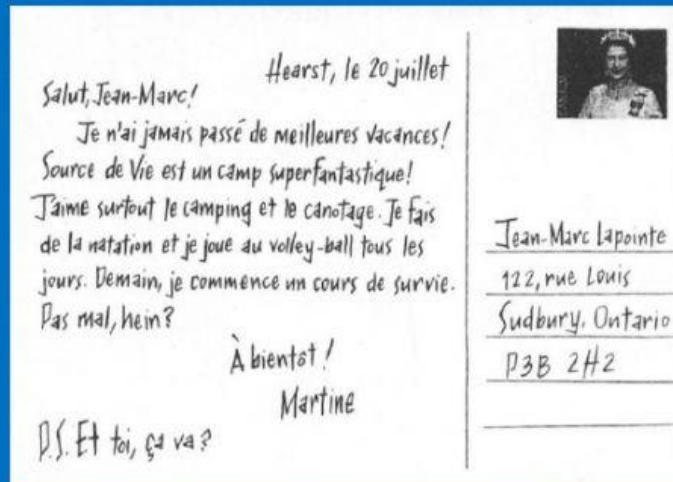 Hearst, le 20 juillet
Salut, Jean-Marc!
Je n'ai jamais passé de meilleures vacances!
Source de Vie est un camp superfantastique!
J'aime surtout le camping et le canotage. Je fais
de la natation et je joue au volley-ball tous les
jours. Demain, je commence un cours de survie.
Pas mal, hein?
À bientôt!
Martine
P.S. Et toi, ça va?
Jean-Marc Lapointe
122, rue Louis
Sudbury, Ontario
P3B 2H2